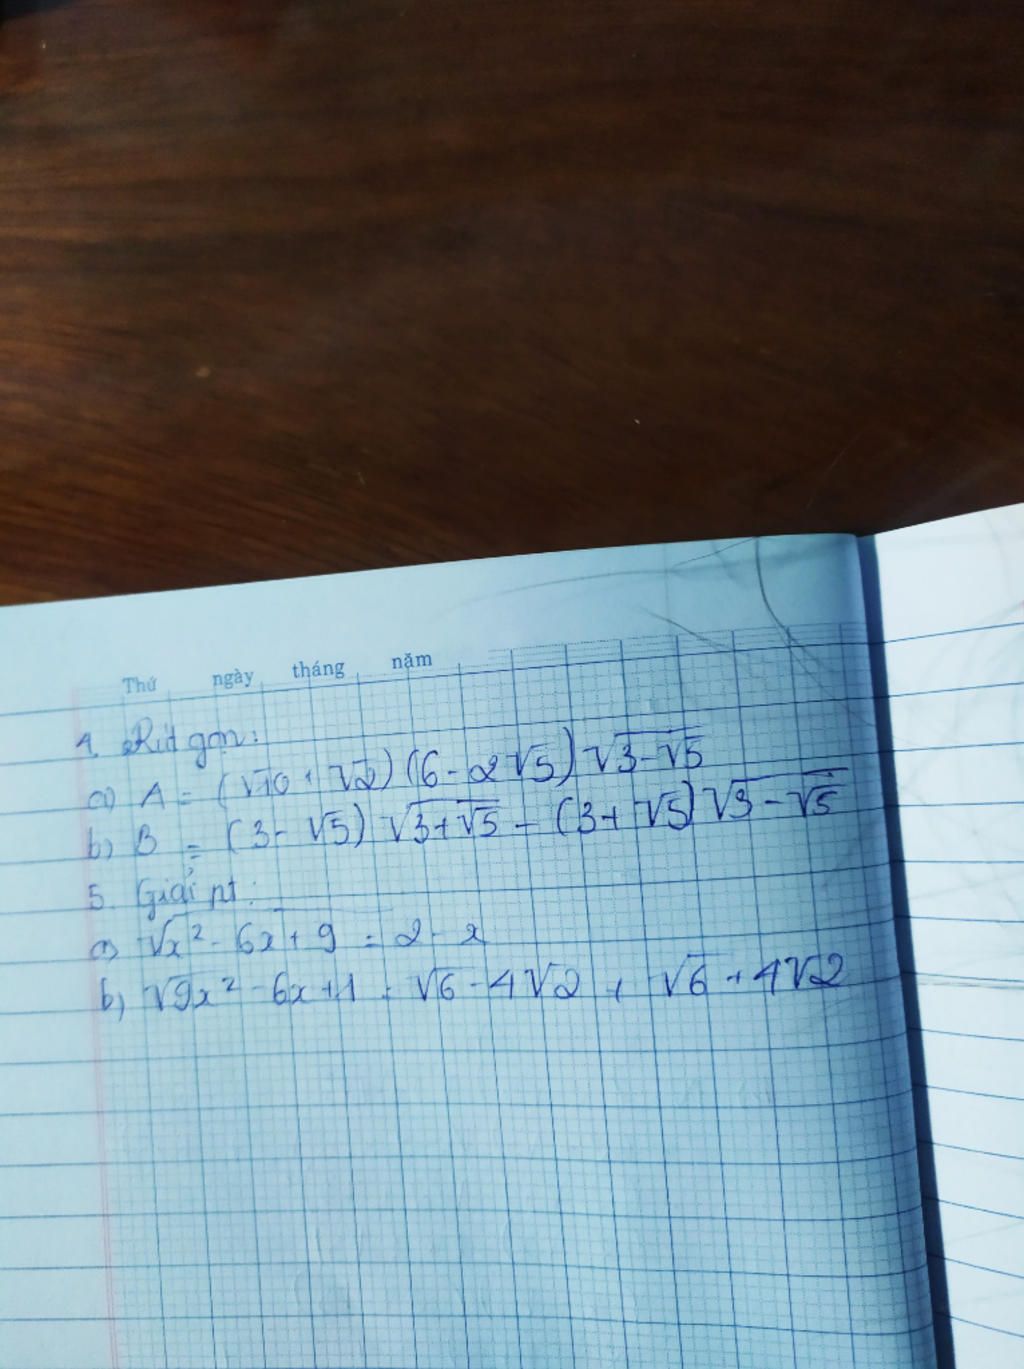 Thứ ngày tháng năm
4. Rút gọn:
a) A = (√10 + √2)(6 - 2√5)√(3-√5)
b) B = (3 - √5)√(3+√5) - (3+√5)√(3-√5)
5. Giải pt:
a) √(x² - 6x + 9) = 2 - x
b) √(9x² - 6x + 1) = √(6 - 4√2) + √(6 + 4√2)